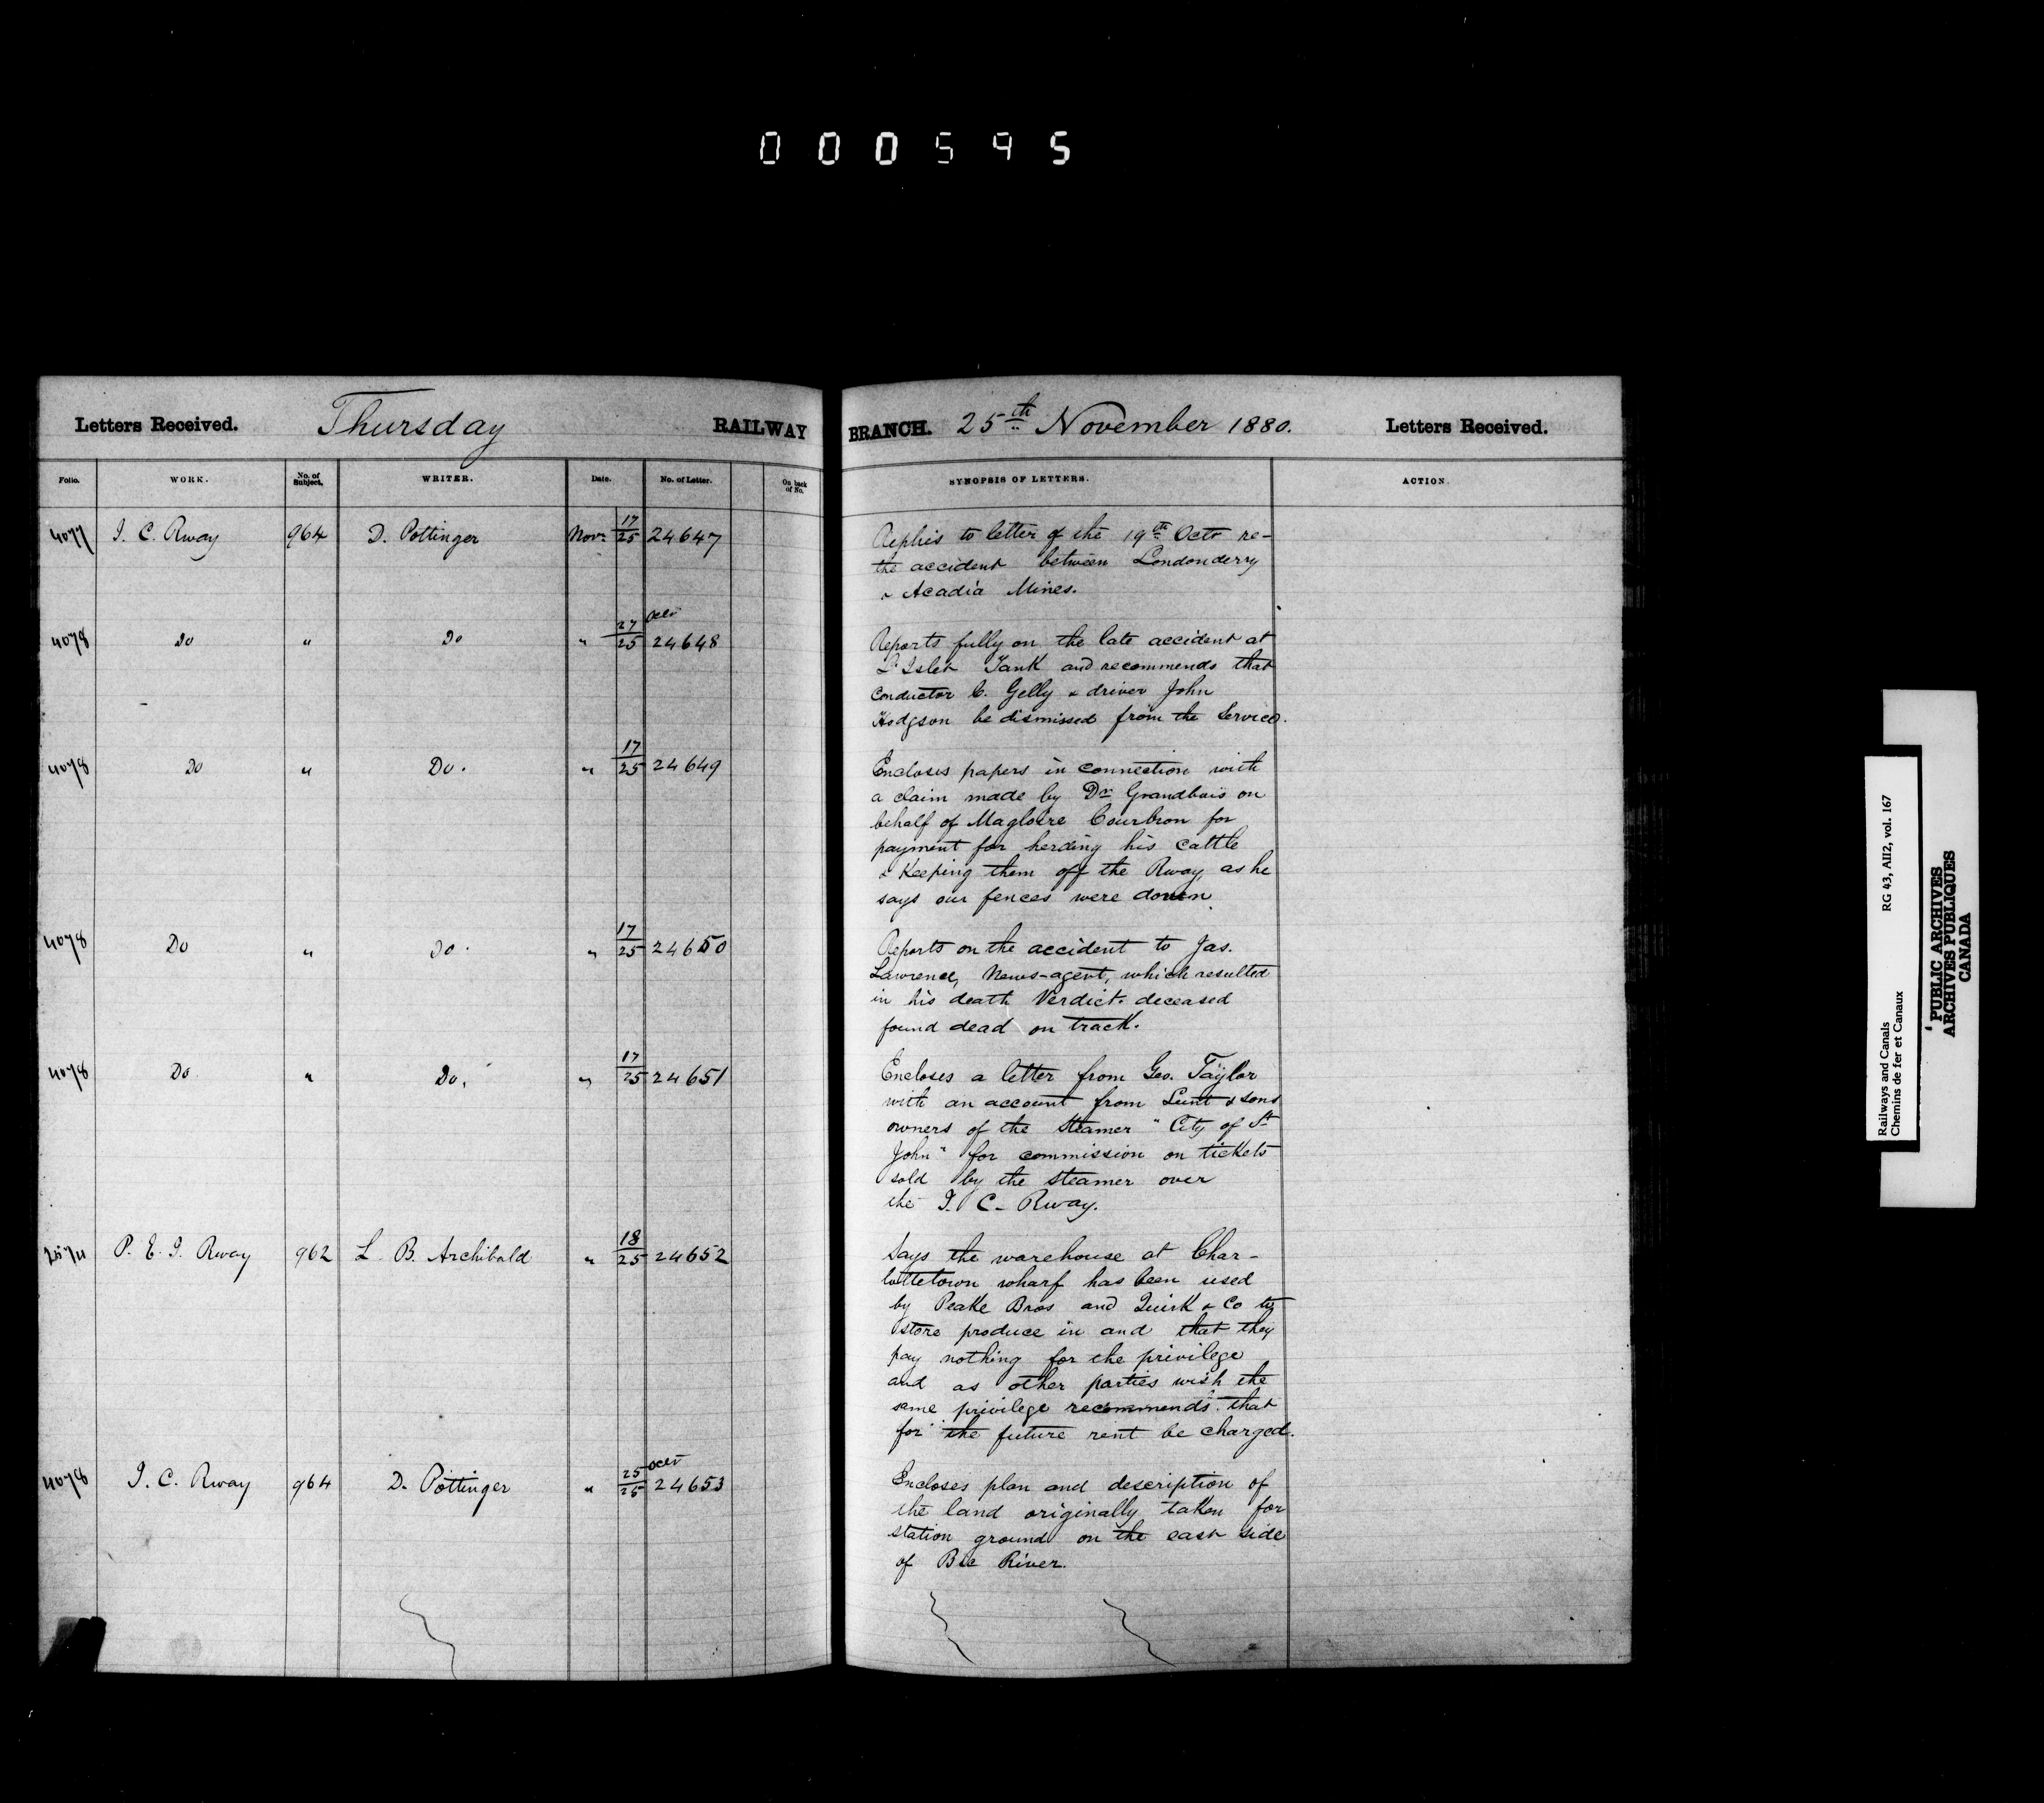 000595
Letters Received. Thursday RAILWAY BRANCH. 25th November 1880. Letters Received.
Folio. WORK. No. of Subject. WRITER. Date. No. of Letter. On back of No. SYNOPSIS OF LETTERS. ACTION.
4077 I. C. Rway 964 D. Pottinger Novr 17/25 24647
Replies to letter of the 19th Octr re-
the accident between Londonderry
& Acadia Mines.
4078 Do " Do " 27/25 Octr 24648
Reports fully on the late accident at
L'Islet Tank and recommends that
Conductor C. Gelly & driver John
Hodgson be dismissed from the Service.
4078 Do " Do. " 17/25 24649
Encloses papers in connection with
a claim made by Dr. Grandbois on
behalf of Magloire Courbron for
payment for herding his cattle
& keeping them off the Rway, as he
says our fences were down.
4078 Do " Do. " 17/25 24650
Reports on the accident to Jas.
Lawrence, News-agent, which resulted
in his death Verdict. deceased
found dead on track.
4078 Do " Do. " 17/25 24651
Encloses a letter from Geo. Taylor
with an account from Lunt & Sons
owners of the Steamer "City of St
John" for commission on tickets
sold by the steamer over
the I. C. Rway.
P. E. I. Rway 962 L. B. Archibald " 18/25 24652
Says the warehouse at Char-
lottetown wharf has been used
by Peake Bros and Quirk & Co to
store produce in and that they
pay nothing for the privilege
and as other parties wish the
same privilege recommends that
for the future rent be charged.
4078 I. C. Rway 964 D. Pottinger " 25/25 Octr 24653
Encloses plan and description of
the land originally taken for
station ground on the east side
of Bic River.
Railways and Canals RG 43, AII2, vol. 167
Chemins de fer et Canaux
PUBLIC ARCHIVES
ARCHIVES PUBLIQUES
CANADA